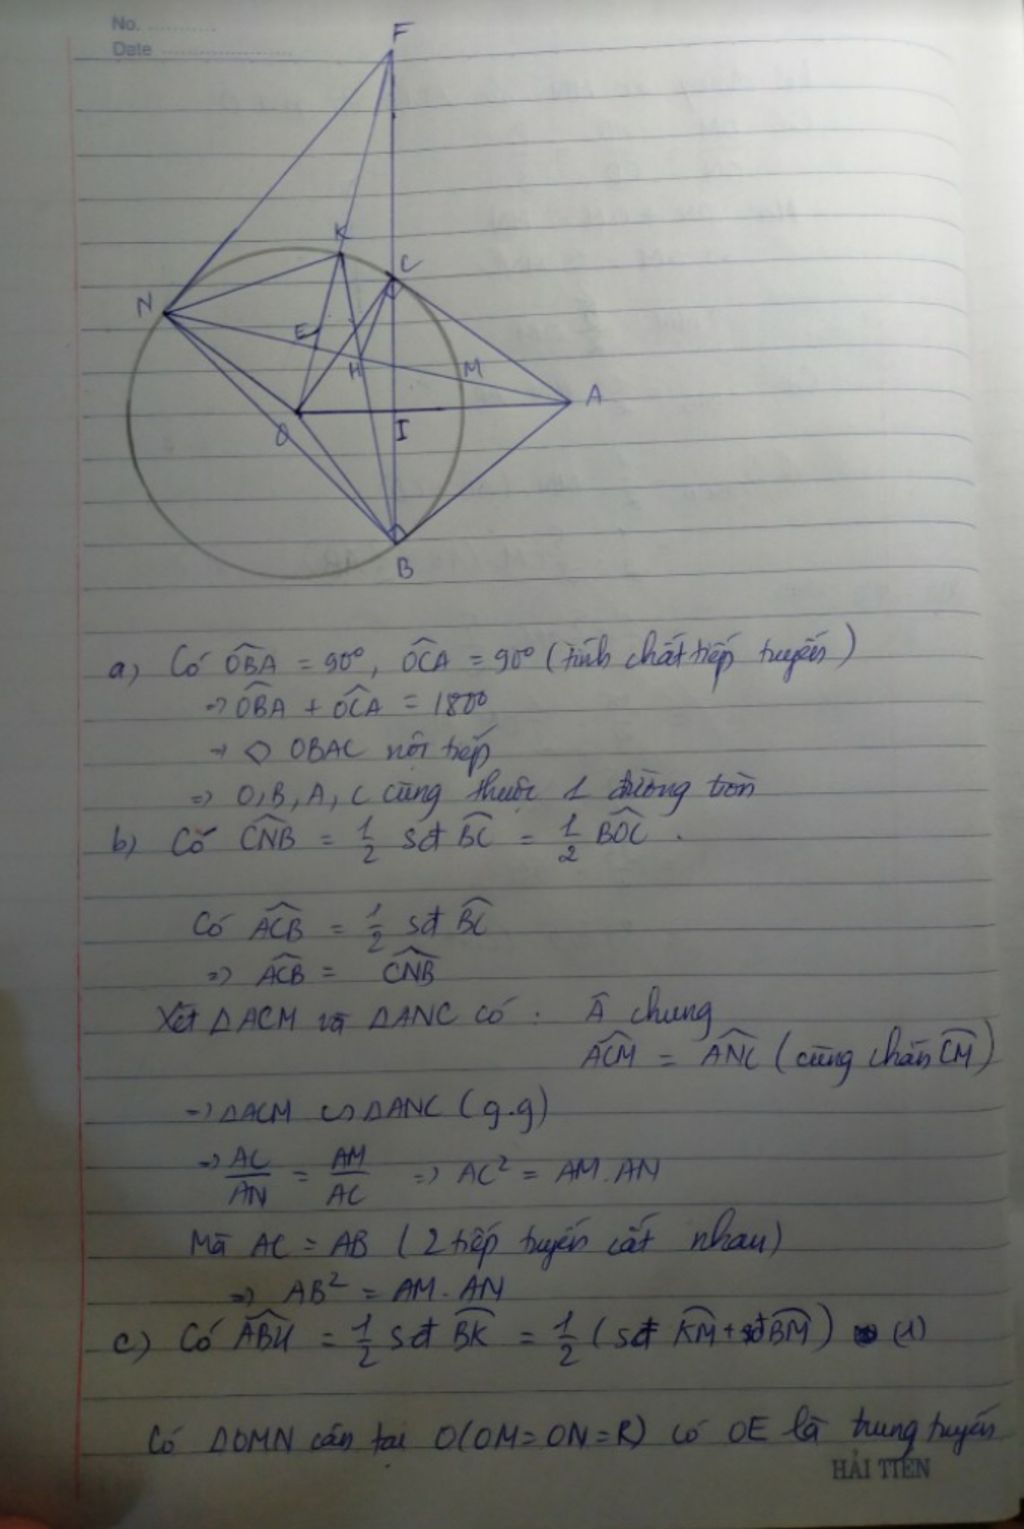 No. ............
Date .......................
F
K
C
N
E
H
M
A
O
I
B
a) Có OBA = 90°, OCA = 90° (tính chất tiếp tuyến)
→ OBA + OCA = 180°
→ ◇ OBAC nội tiếp
=> O, B, A, C cùng thuộc 1 đường tròn
b) Có CNB = 1/2 sđ BC = 1/2 BOC .
Có ACB = 1/2 sđ BC
=> ACB = CNB
Xét ΔACM và ΔANC có : Â chung
ACM = ANC (cùng chắn CM)
=> ΔACM ∽ ΔANC (g.g)
=> AC/AN = AM/AC => AC² = AM.AN
Mà AC = AB (2 tiếp tuyến cắt nhau)
=> AB² = AM.AN
c) Có ABH = 1/2 sđ BK = 1/2 (sđ KM + sđ BM) (1)
Có ΔOMN cân tại O(OM=ON=R) có OE là trung tuyến
HẢI TIẾN